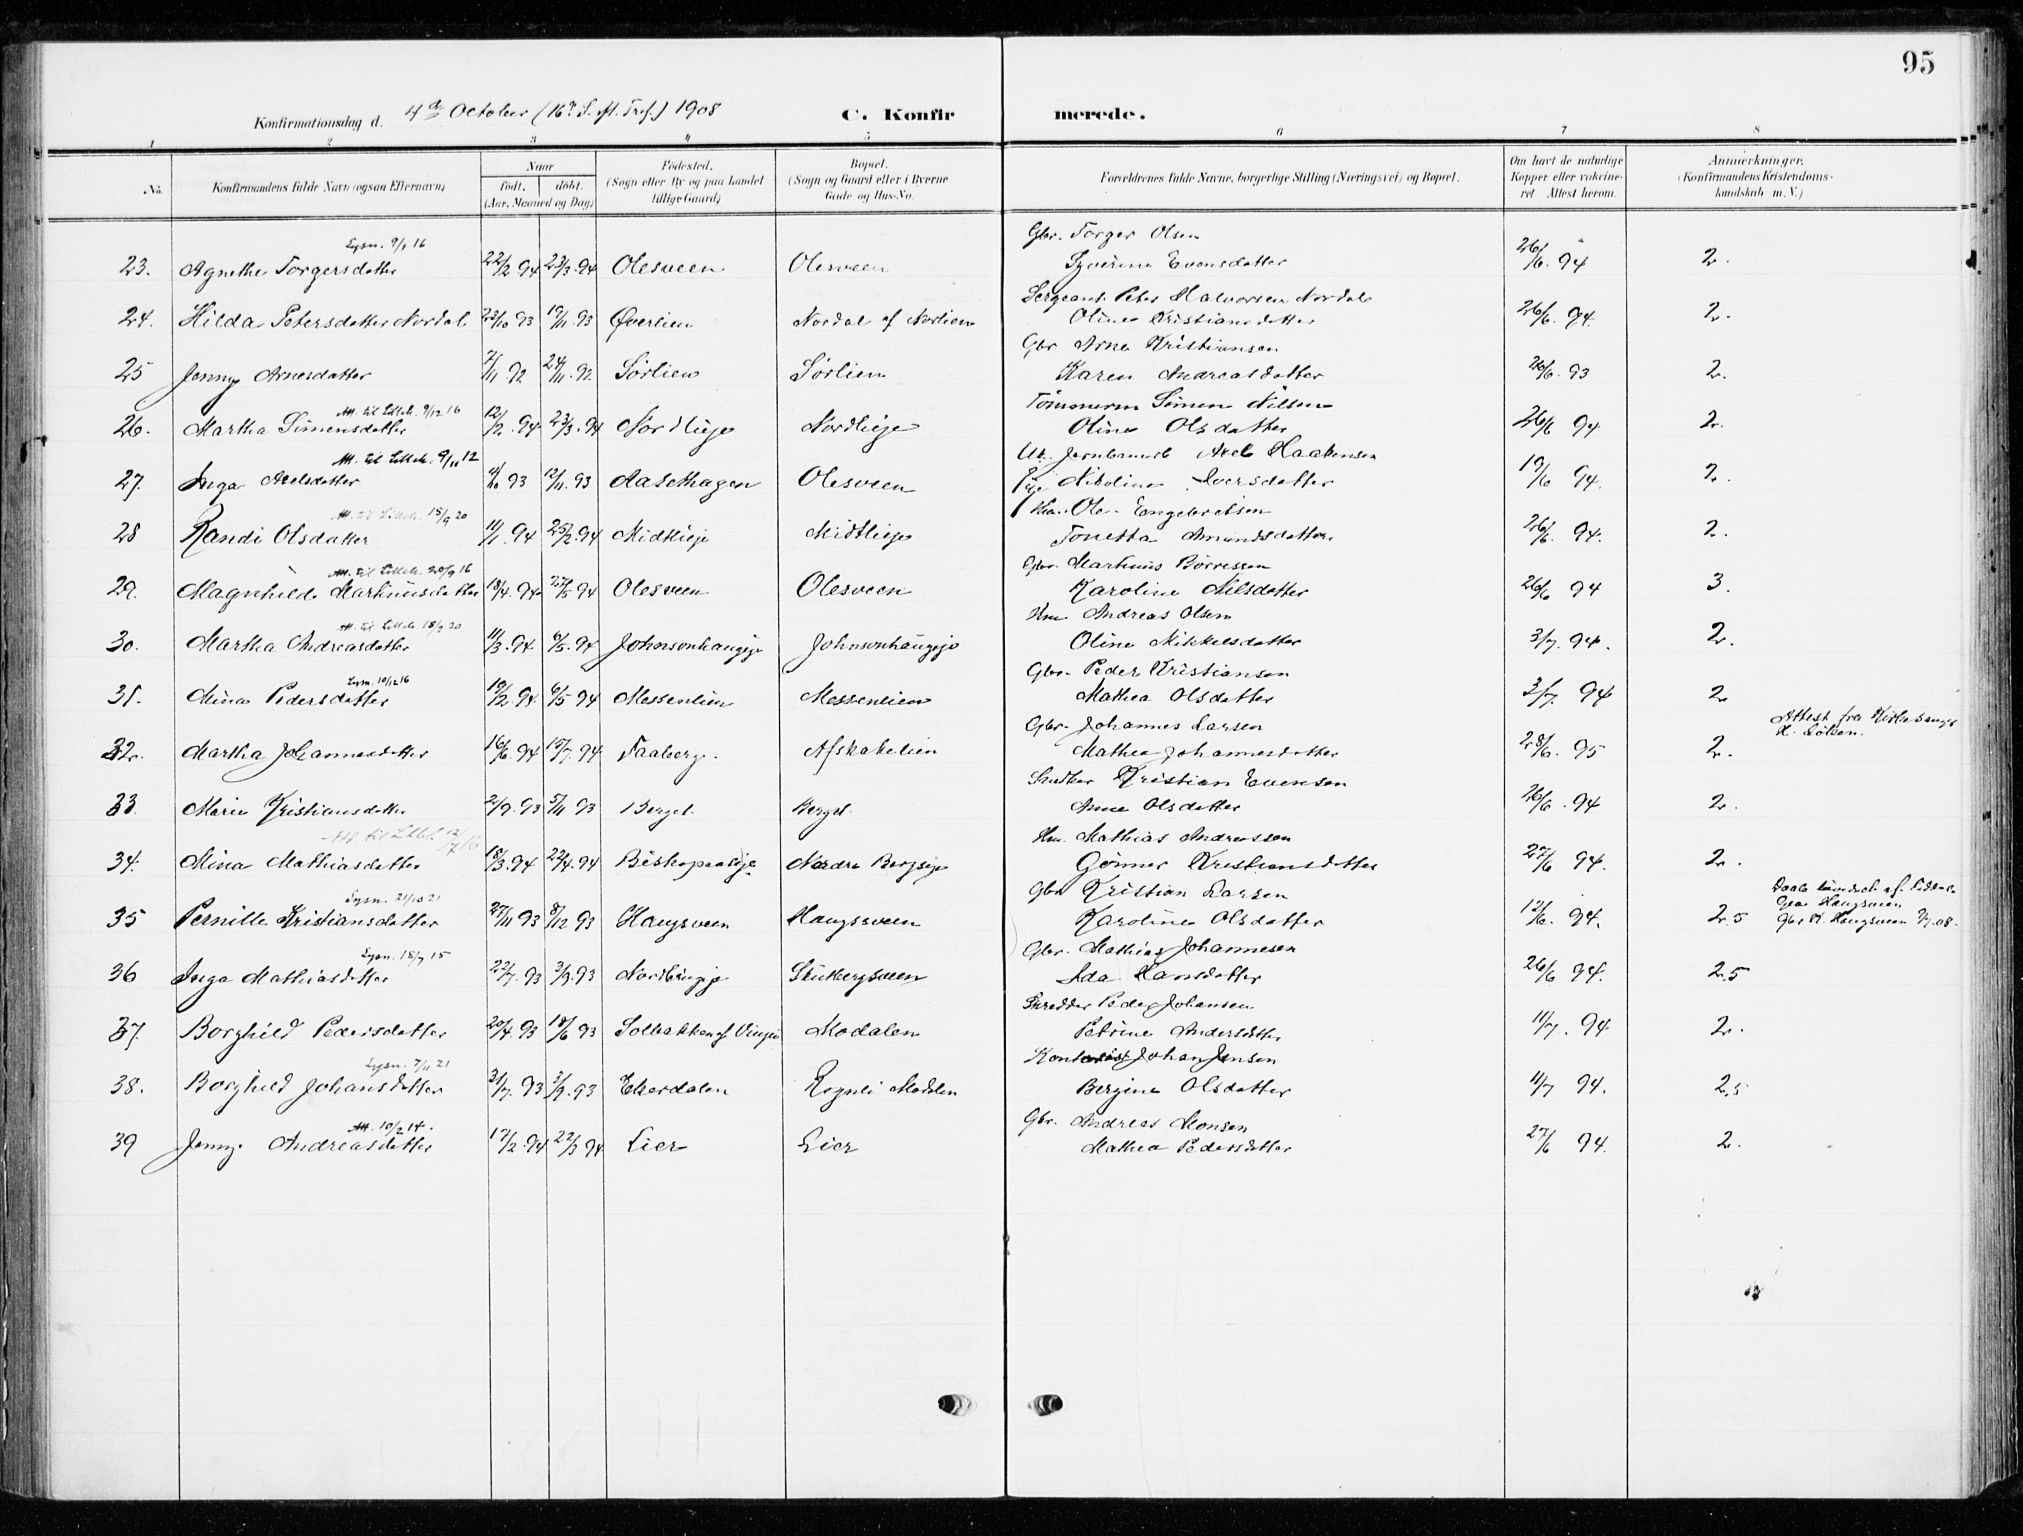 95
Konfirmationsdag d. 4de October (16de S. eft. Tref.) 1908
C. Konfirmerede.
1 2 3 4 5 6 7 8
No. Konfirmandens fulde Navn (ogsaa Efternavn) Naar født. døbt. (Aar, Maaned og Dag) Fødested. (Sogn eller By og paa Landet tillige Gaard) Bopæl. (Sogn og Gaard eller i Byerne Gade og Hus-No. Forældrenes fulde Navne, borgerlige Stilling (Næringsvei) og Bopæl. Om havt de naturlige Kopper eller vaccineret Attest herom. Anmærkninger. (Konfirmandens Kristendomskundskab m. V.)
Lysn. 9/1 16 Gbr. Torger Olsen
23. Agnethe Torgersdatter 22/2 94 23/3 94 Olesveen Olesveen Syverine Evensdatter 26/6 94 2.
Sergeant Peter Halvorsen Nordal
24. Hilda Petersdatter Nordal 23/10 93 19/11 93 Øverlien Nordal af Norlien Oline Kristiansdatter 26/6. 94. 2.
Gbr Arne Kristiansen
25 Jenny Arnesdatter 7/11 92 24/11 92 Sørlien Sørlien Karen Andreasdatter 20/6 93 2.
Att. til Lilleh. 9/12 16 Tømmerm Simen Nilsen
26. Martha Simensdatter 12/2 94 23/3 94 Nordlieje Nordlieje Oline Olsdatter 26/6 94 2.
Att. til Lilleh. 9/11 12 Axel Haakensen
27. Inga Axelsdatter 4/10 93 12/11 93 Aasethagen Olesveen Pige Nikoline Iversdatter 19/6 94. 2.
Att. til Lilleh. 15/9 20 Ole Engebretsen
28 Randi Olsdatter 11/1 94 25/2 94 Midtlieje Midtlieje Tonetta Amundsdatter 26/6. 94. 2.
Att. til Lilleh. 20/9 16 Gbr. Markus Børresen
29. Magnhild Markusdatter 18/4 94 27/5 94 Olesveen Olesveen Karoline Nilsdatter 26/6 94 3.
Att. til Lilleh. 18/2 20 Hm Andreas Olsen
30. Martha Andreasdatter 11/3 94 6/5 94 Johnsonhaugeje Johnsonhaugeje Oline Mikkelsdatter 3/7. 94. 2.
Lysn. 10/12 16 Gbr. Peder Kristiansen
31. Mina Pedersdatter 19/2 94 6/5 94 Messenlien Messenlien Mathea Olsdatter 3/7. 94 2
Gbr. Johannes Larsen Attest fra Kirkesanger
H. Løken.
32. Martha Johannesdatter 16/6 94 15/7 94 Faaberg. Afskakelien Mathea Johannesdatter 28/6. 95 2.
Snedker Kristian Evensen
33 Marie Kristiansdatter 2/9 93 5/11 93 Berget Berget Anne Olsdatter 26/6. 94 2.
Att. til Lilleh. 12/7 16 Hm. Mathias Andreassen
34. Mina Mathiasdatter 18/3 94 22/4 94 Beskopaaseje Nordre Bergseje Gønner Kristiansdatter 27/6 94. 2.
Lysn. 21/10 21 Gbr Kristian Larsen
35 Pernille Kristiansdatter 27/11 93 8/12 93 Haugsveen Haugsveen Karoline Olsdatter 12/6. 94. 2.5 Gbr K. Haugsveen 08.
Lysn. 18/7 15 Gbr. Mathias Johannesen
36 Inga Mathiasdatter 22/7. 93 3/9 93 Skutbergsveen Ida Hansdatter 26/6 94. 2.5
Skredder Peder Johansen
37. Borghild Pedersdatter 20/4 93 18/6 93 Solbakken af Modalen Petrine Andersdatter 11/7. 94 2.
Lysn. 7/11 21 Johan Jensen
38. Borghild Johansdatter 31/7. 93 3/9. 93 Ekerdalen Rognli Modalen Bergine Olsdatter 11/7 94. 2.5
Att. 10/2 14. Gbr. Andreas Monsen
39 Jenny Andreasdatter 17/2. 94 22/3 94 Lier Lier Mathea Pedersdatter 27/6 94. 2.